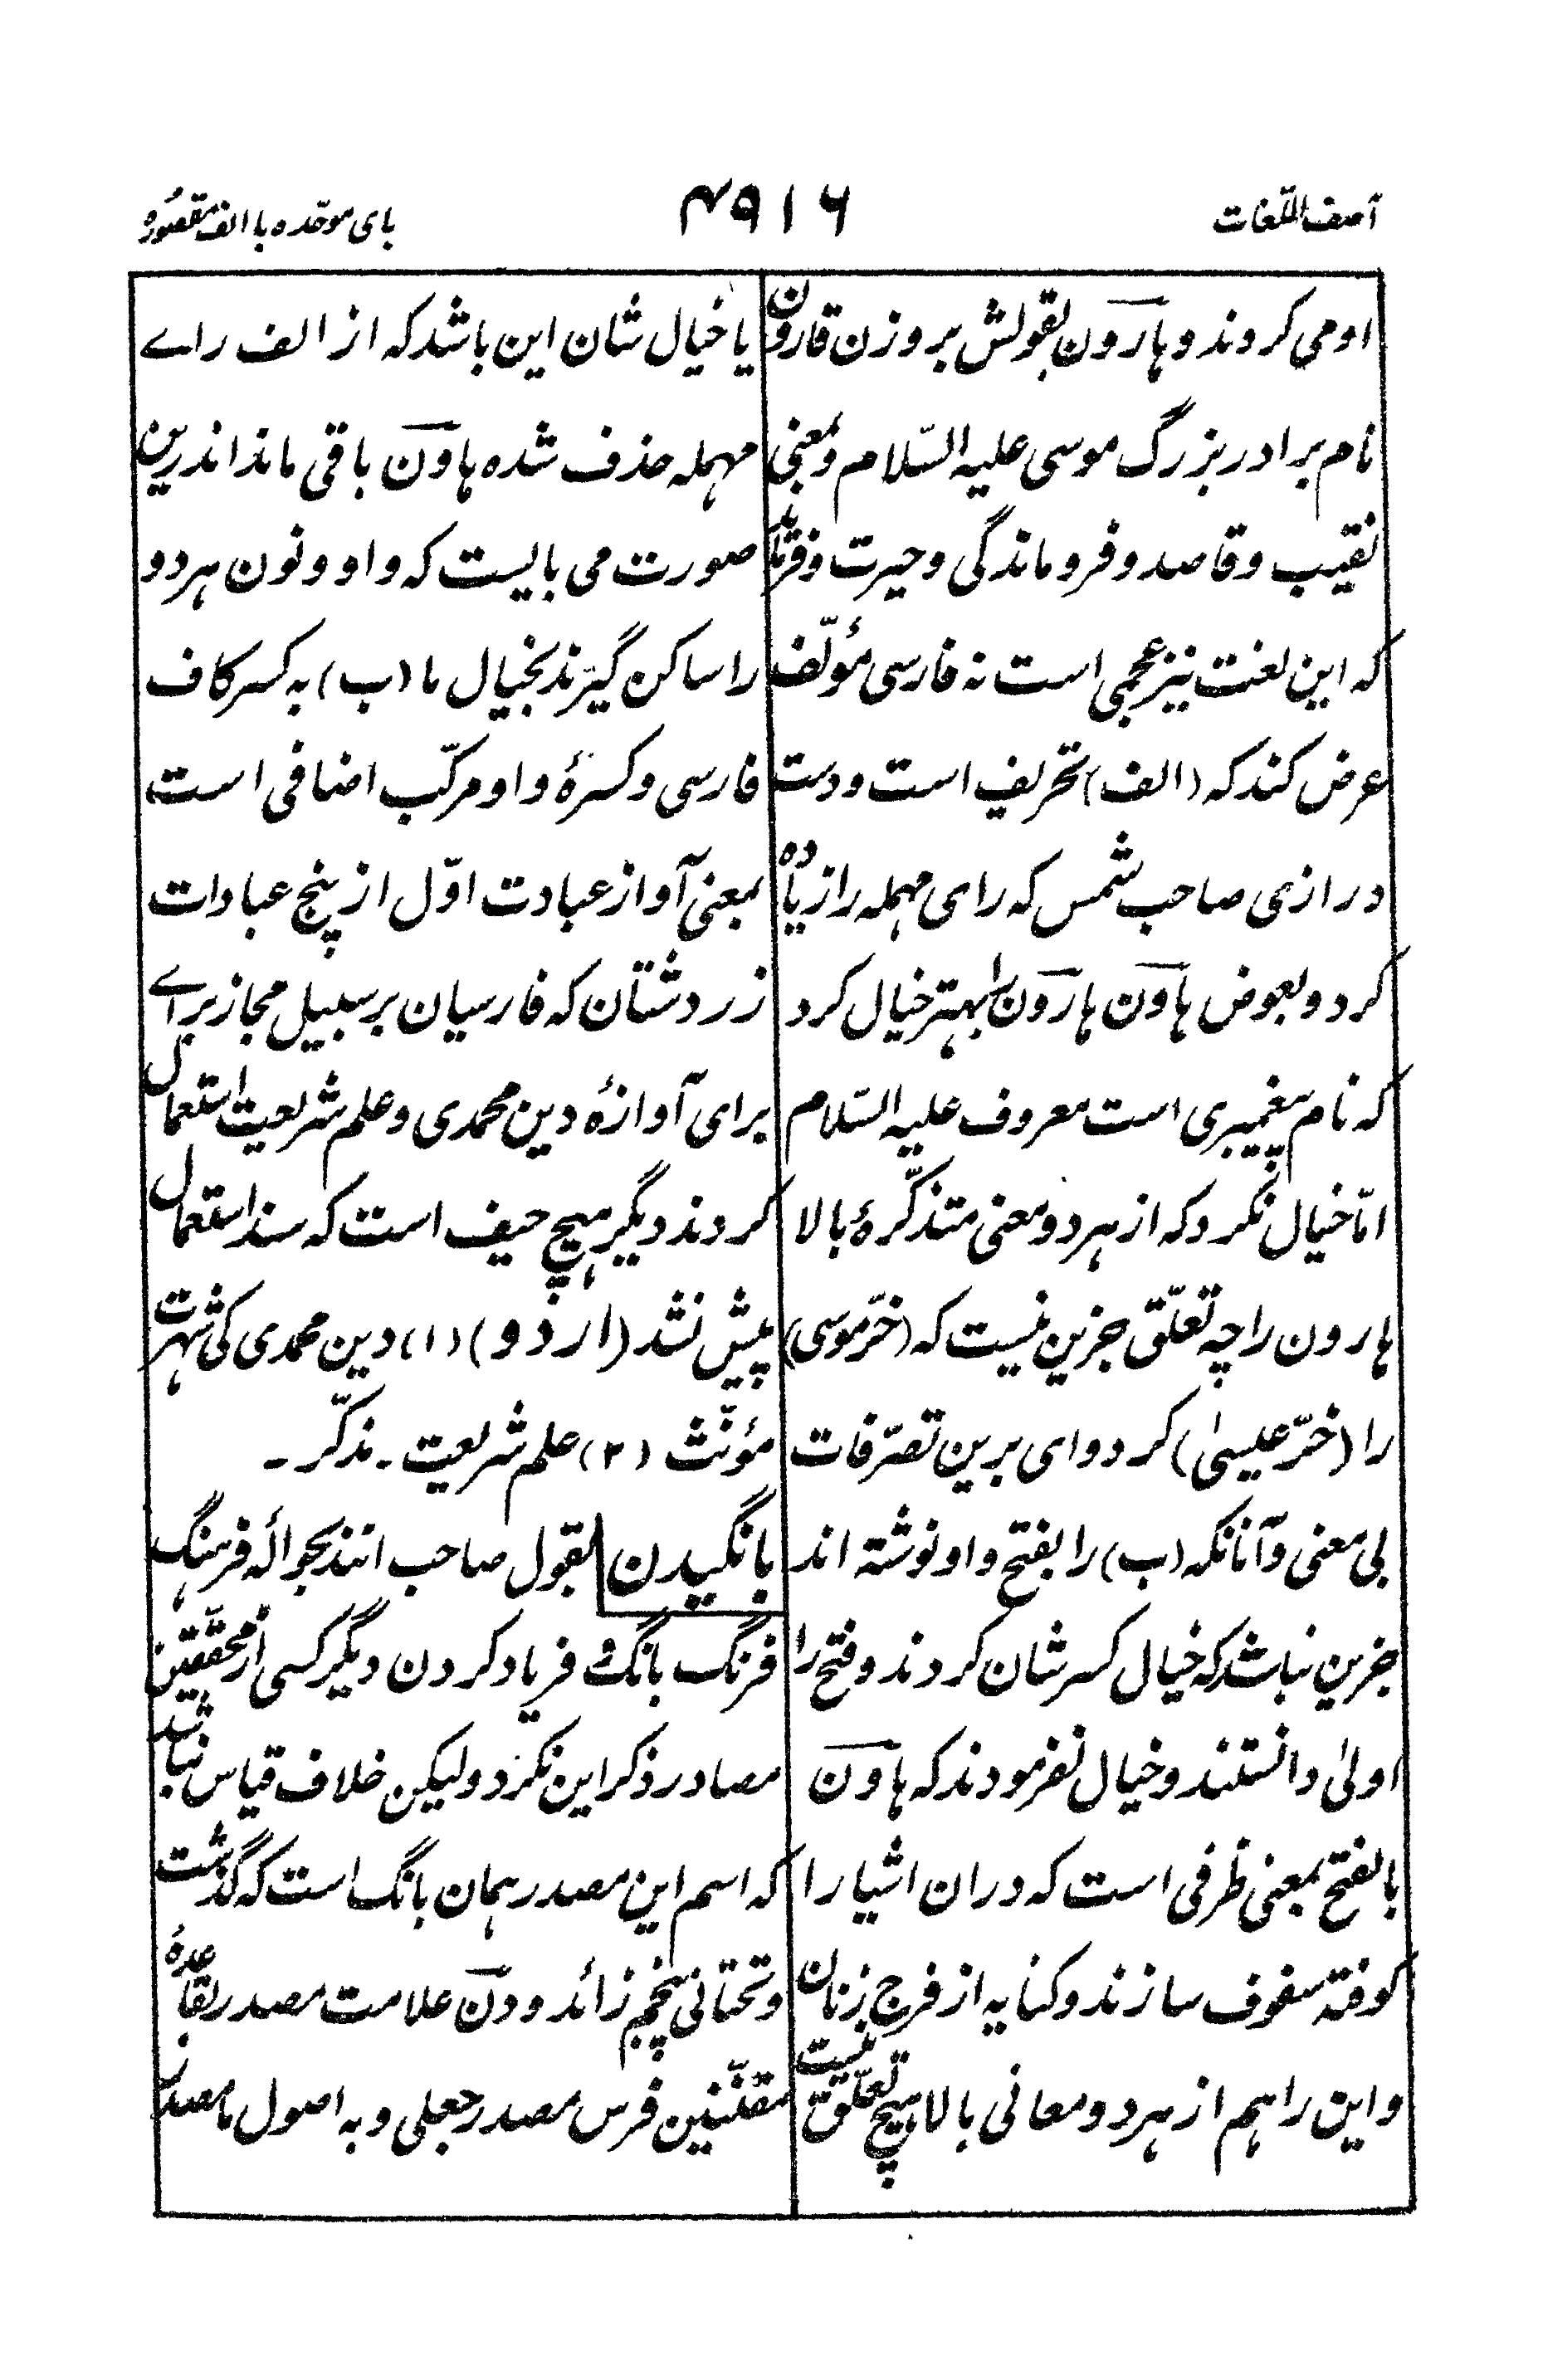 آصف اللّغات
۴۹۱۶
بای موحّده با الف مقصُوره
او می کردند و هارون بقولش بر وزن قارون
نام برادر بزرگ موسی علیہ السّلام و بمعنی
نقیب و قاصد و فروماندگی و حیرت و فرماید
کہ این لغت نیز عجمی است نہ فارسی مؤلّف
عرض کند کہ (الف) تحریف است و دست
درازی صاحب شمس کہ رای مہملہ را زیاده
کرد و بعوض هاون هارون را بہتر خیال کرد
کہ نام پیغمبری است معروف علیہ السّلام
امّا خیال نکرد کہ از ہر دو معنی متذکّرهٔ بالا
ہارون را چہ تعلّق جزین نیست کہ (خرّ موسی)
را (خرّ عیسیٰ) کرد وای برین تصرّفات
بی معنی و آنانکہ (ب) را بفتح واو نوشتہ اند
جزین نباشد کہ خیال کسر شان کردند و فتح را
اولیٰ دانستند و خیال نفرمودند کہ هاون
بالفتح بمعنی ظرفی است کہ دران اشیا را
کوفتہ سفوف سازند و کنایہ از فرج زنان
و این را ہم از ہر دو معانی بالا ہیچ تعلّق نیست
یا خیال شان این باشد کہ از الف راے
مہملہ حذف شده هاون باقی ماند اندرین
صورت می بالیست کہ واو و نون ہر دو
را ساکن گیرند بخیال ما (ب) بہ کسر کاف
فارسی و کسرهٔ واو مرکّب اضافی است
بمعنی آواز عبادت اوّل از پنج عبادات
زردشتان کہ فارسیان بر سبیل مجاز براے
برای آوازهٔ دین محمدی و علم شریعت استعمال
کردند دیگر ہیچ حیف است کہ سند استعمال
پیش نشد (اردو) (۱) دین محمدی کی شہرت
مؤنّث (۲) علم شریعت ۔ مذکّر ۔
بانگیدن بقول صاحب انند بحوالہ فرہنگ
فرنگ بانگ و فریاد کردن دیگر کسی از محقّقین
مصادر ذکر این نکرد و لیکن خلاف قیاس نباشد
کہ اسم این مصدر ہمان بانگ است کہ گذشت
و تحتانی پنجم زائد و دن علامت مصدر بقاعدهٔ
مقنّنین فرس مصدر جعلی و بہ اصول ما مصدر